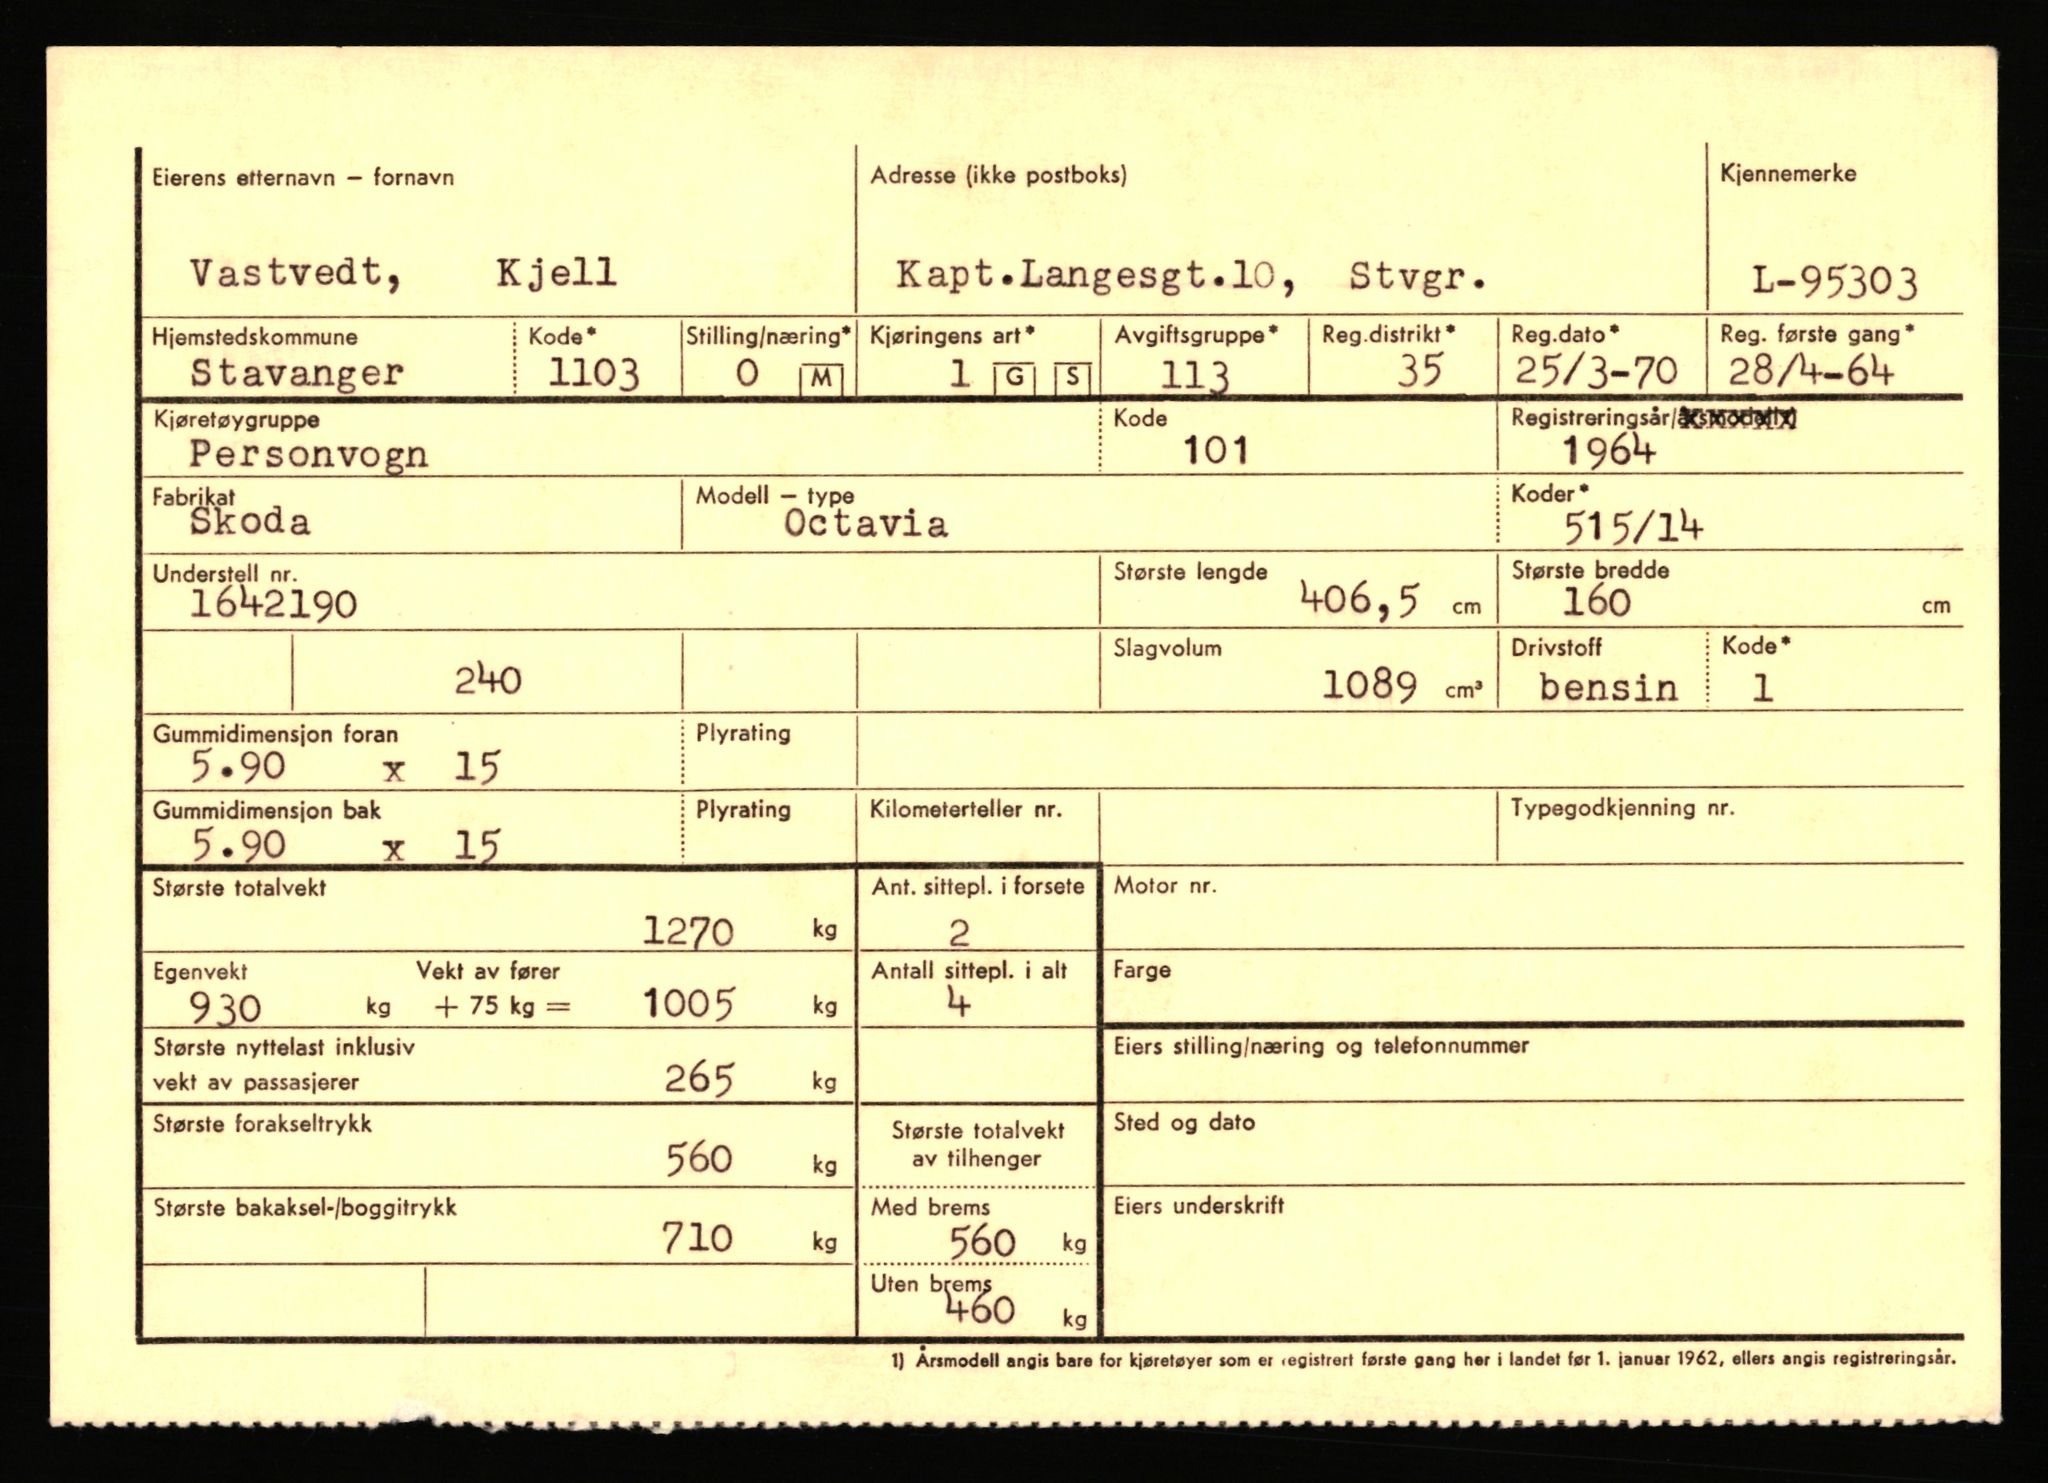 Eierens etternavn – fornavn Adresse (ikke postboks) Kjennemerke
Vastvedt, Kjell Kapt.Langesgt.10, Stvgr. L-95303
Hjemstedskommune Kode* Stilling/næring* Kjøringens art* Avgiftsgruppe* Reg.distrikt* Reg.dato* Reg. første gang*
Stavanger 1103 0 M 1 G S 113 35 25/3-70 28/4-64
Kjøretøygruppe Kode Registreringsår/årsmodell
Personvogn 101 1964
Fabrikat Modell – type Koder*
Skoda Octavia 515/14
Understell nr. Største lengde Største bredde
1642190 406,5 cm 160 cm
Slagvolum Drivstoff Kode*
240 1089 cm³ bensin 1
Gummidimensjon foran Plyrating
5.90 x 15
Gummidimensjon bak Plyrating Kilometerteller nr. Typegodkjenning nr.
5.90 x 15
Største totalvekt Ant. sittepl. i forsete Motor nr.
1270 kg 2
Egenvekt Vekt av fører Antall sittepl. i alt Farge
930 kg + 75 kg = 1005 kg 4
Største nyttelast inklusiv Eiers stilling/næring og telefonnummer
vekt av passasjerer 265 kg
Største forakseltrykk Største totalvekt Sted og dato
560 kg av tilhenger
Største bakaksel-/boggitrykk Med brems Eiers underskrift
710 kg 560 kg
Uten brems
460 kg
1) Årsmodell angis bare for kjøretøyer som er registrert første gang her i landet før 1. januar 1962, ellers angis registreringsår.